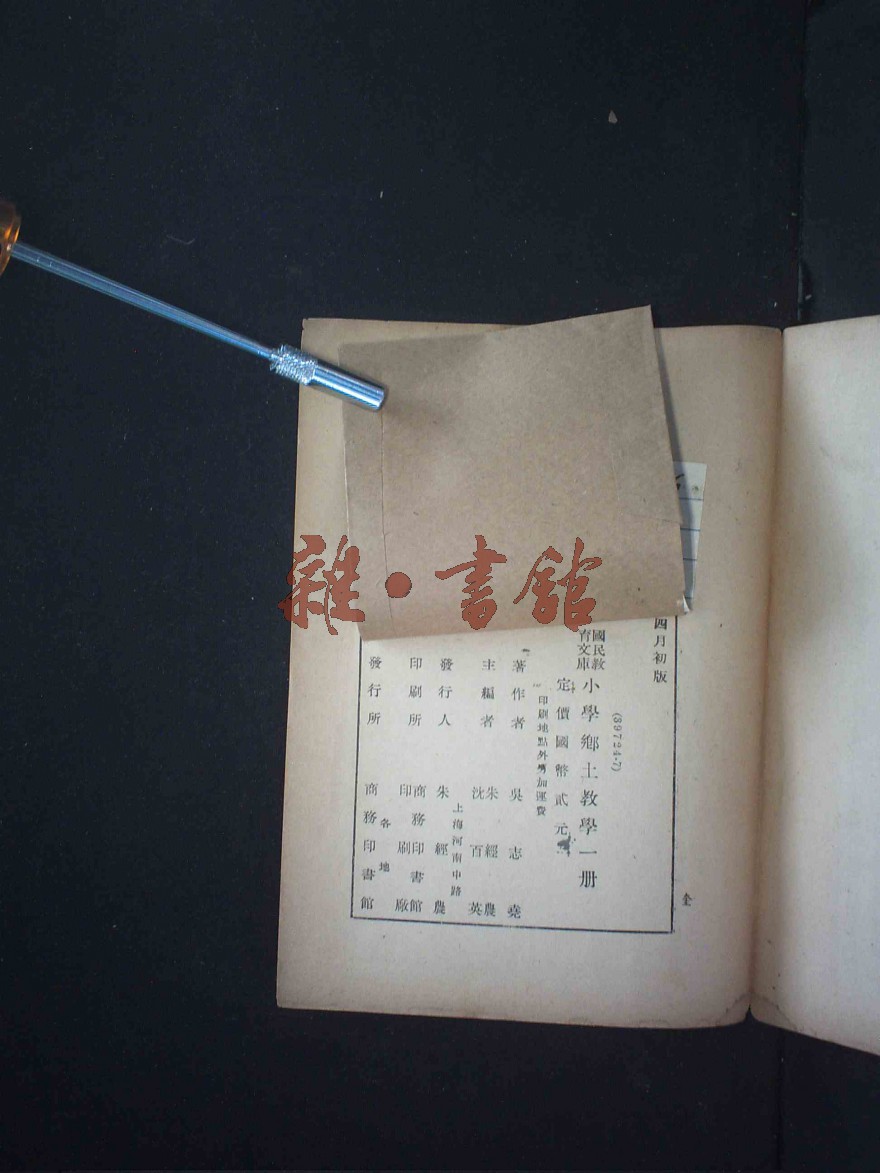 雜·書館
四月初版
(39724·7)
國民教育文庫
小學鄉土教學一册
定價國幣貳元
印刷地點外另加運費
著作者 吳志堯
主編者 朱經農 沈百英
上海河南中路
發行人 朱經農
印刷所 商務印書館印刷廠
各地
發行所 商務印書館